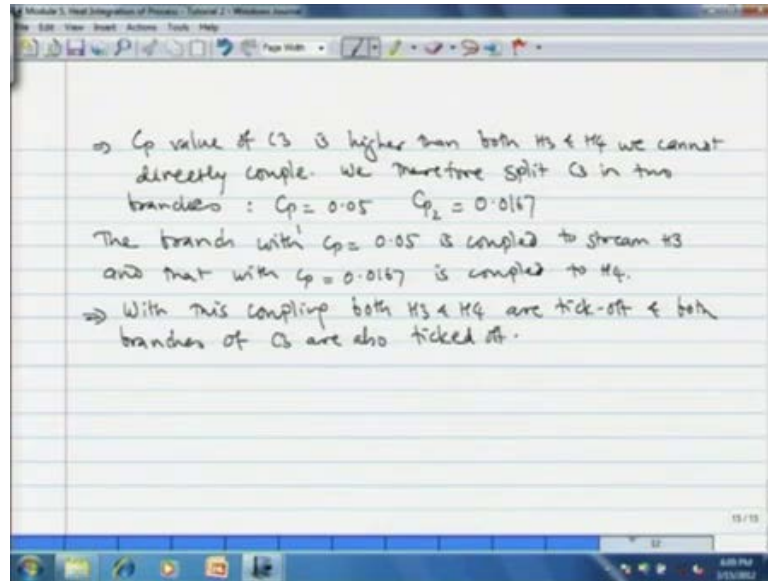 Module 5. Heat Integration of Process - Tutorial 2 - Windows Journal
File Edit View Insert Actions Tools Help
Page Width
⇒ Cp value of C3 is higher than both H3 & H4 we cannot
directly couple. We therefore split C3 in two
branches : Cp1 = 0.05 Cp2 = 0.0167
The branch with Cp = 0.05 is coupled to stream H3
and that with Cp = 0.0167 is coupled to H4.
⇒ With this coupling both H3 & H4 are tick-off & both
branches of C3 are also ticked off.
15/15
12
6:05 PM
3/15/2012